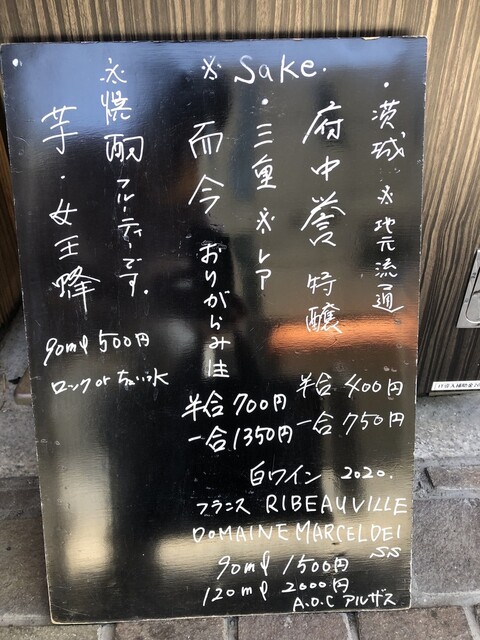 ※ Sake.
・茨城 ※地元流通
府中誉 特醸
半合 400円
一合 750円
・三重 ※レア
而今 おりがらみ生
半合 700円
一合 1350円
※焼酎 フルーティーです。
芋・女王蜂
90ml 500円
ロック or ちょい水
白ワイン 2020.
フランス RIBEAUVILLE
DOMAINE MARCEL DEI
SS
90ml 1500円
120ml 2000円
A.O.C アルザス